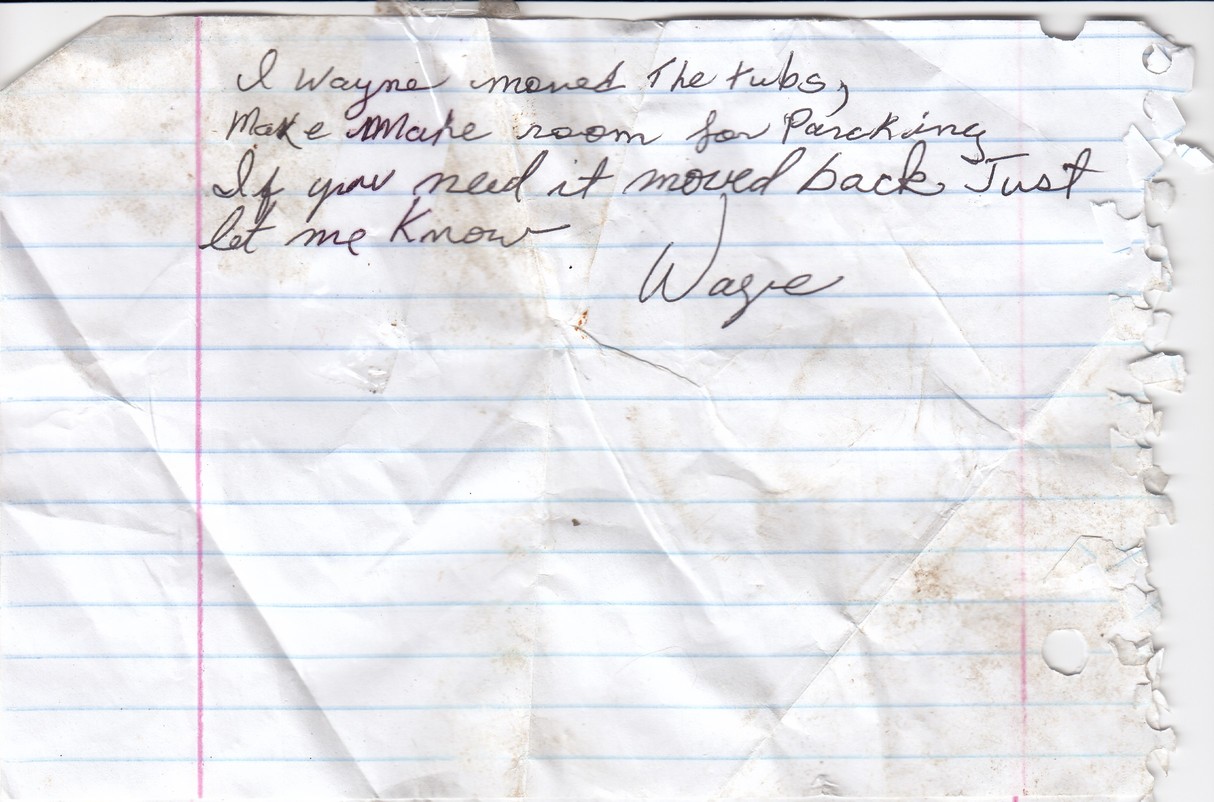 I Wayne moved The tubs,
Make Make room for Parcking
If you need it moved back Just
let me Know
Wayne